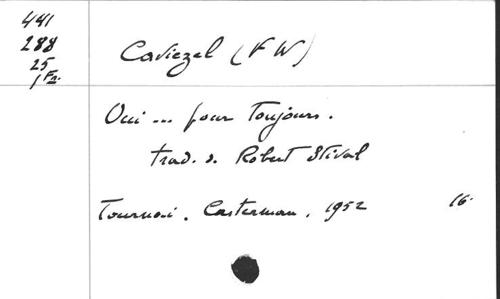 441
288
25
1 Fr.
Caviezel (F W)
Oui ... pour Toujours.
trad. d. Robert Stival
Tournai. Casterman. 1952 16.